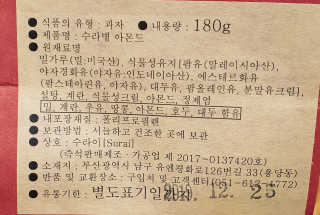 ● 식품의 유형 : 과자 ● 내용량 : 180g
● 제품명 : 수라별 아몬드
● 원재료명
밀가루(밀:미국산), 식물성유지[팜유(말레이시아산),
야자경화유(야자유:인도네이아산), 에스테르화유
(팜스테아린유, 야자유), 대두유, 팜올레인유, 분말유크림],
설탕, 계란, 식물성크림, 아몬드, 정제염
밀, 계란, 우유, 땅콩, 아몬드, 호두, 대두 함유
● 내포장재질 : 폴리프로필렌
● 보관방법 : 서늘하고 건조한 곳에 보관
● 상호 : 수라이[Surai]
(즉석판매제조·가공업 제 2017-0137420호)
● 소재지 : 부산광역시 남구 유엔평화로126번길 33(용당동)
● 반품 및 교환장소 : 구입처 및 고객센터(051-611-4772)
● 유통기한 : 별도표기일까지 12. 25